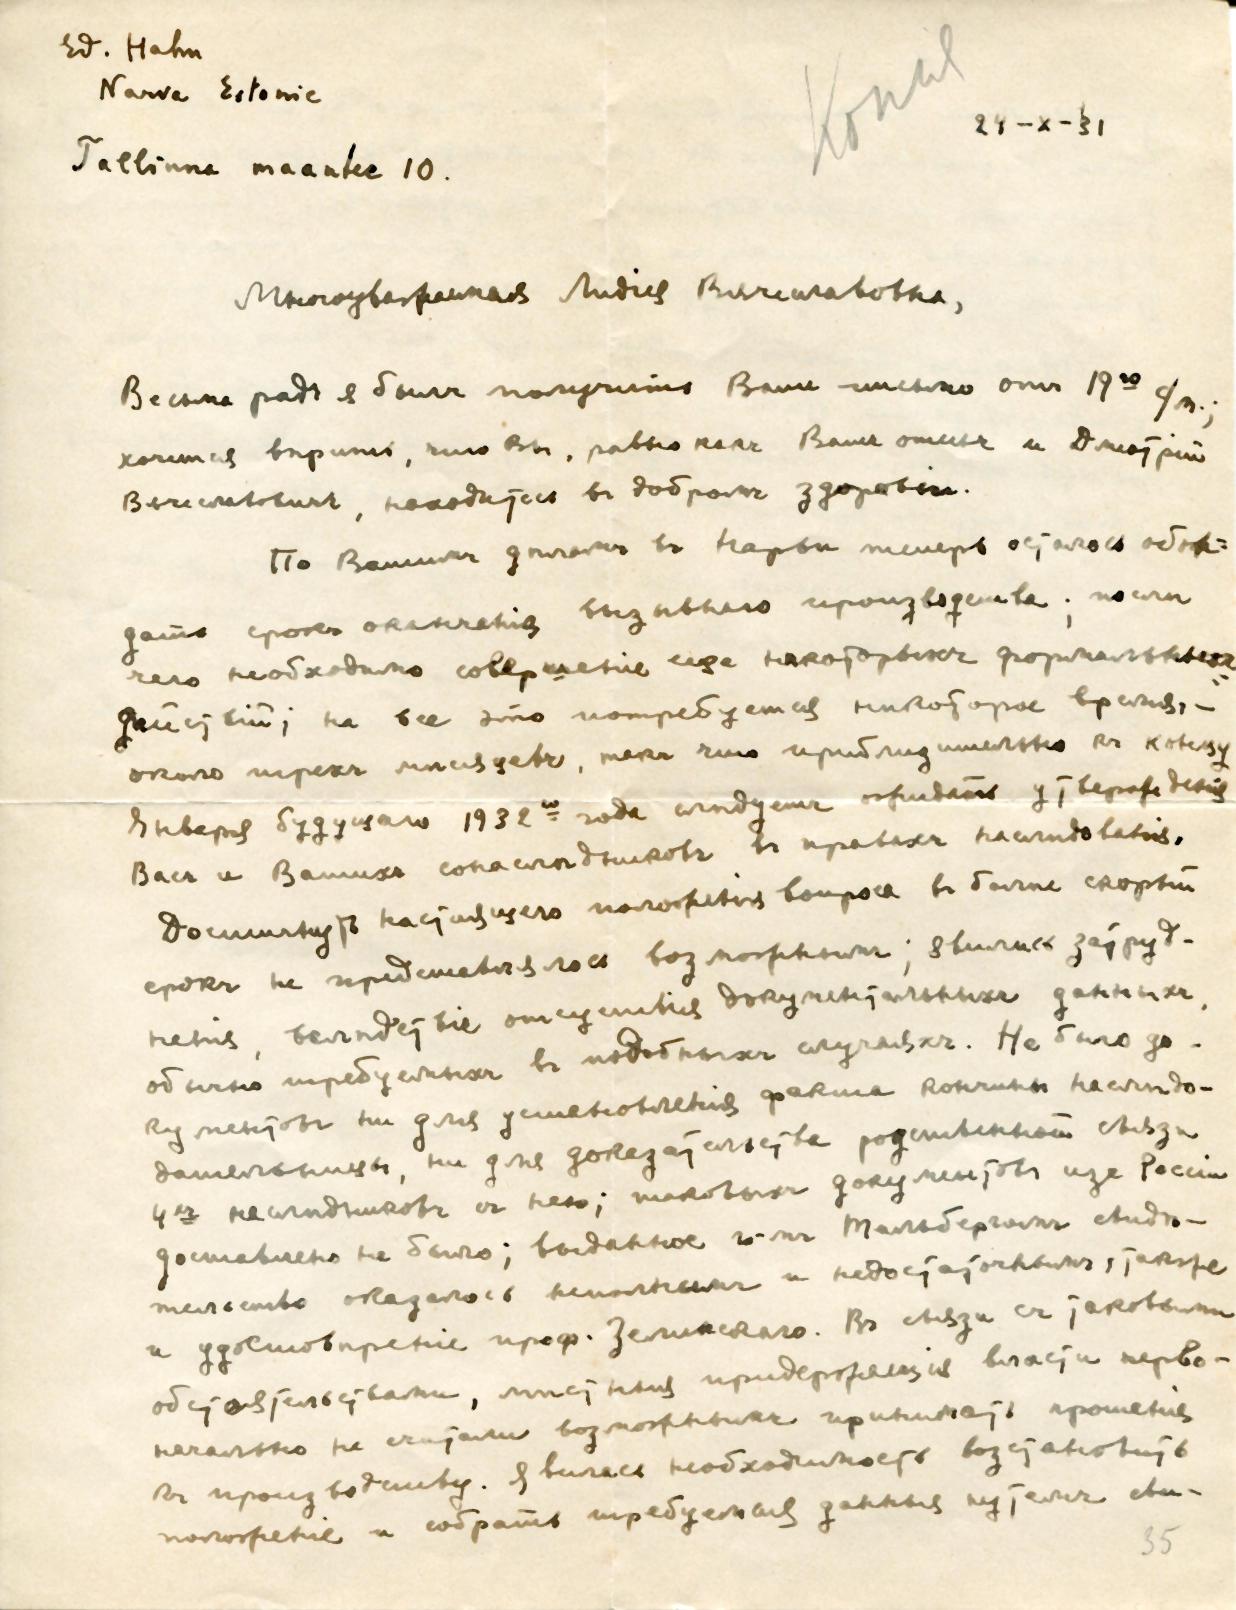 Ed. Hahn
Narva Estonie
Tallinna maantee 10.
Копил
24-X-31
Многоуважаемая Лидія Вячеславовна,
Весьма радъ я былъ получить Ваше письмо отъ 19го с/м.;
хочется вѣрить, что Вы, равно какъ Вашъ отецъ и Дмитрій
Вячеславовичъ, находитесь въ добромъ здоровіи.
По Вашимъ дѣламъ въ Нарвѣ теперь осталось обож-
дать срокъ окончанія вызывнаго производства; послѣ
чего необходимо совершеніе еще нѣкоторыхъ формальныхъ
дѣйствій; на все это потребуется нѣкоторое время, -
около трехъ мѣсяцевъ, такъ что приблизительно къ концу
Января будущаго 1932го года слѣдуетъ ожидать утвержденія
Васъ и Вашихъ сонаслѣдниковъ въ правахъ наслѣдованія.
Достигнуть настоящаго положенія вопроса въ болѣе скорый
срокъ не представлялось возможнымъ; явились затруд-
ненія, вслѣдствіе отсутствія документальныхъ данныхъ,
обычно требуемыхъ въ подобныхъ случаяхъ. Не было до-
кументовъ ни для установленія факта кончины наслѣдо-
дательницы, ни для доказательства родственной связи
4хъ наслѣдниковъ съ нею; таковыхъ документовъ изъ Россіи
доставлено не было; выданное г-мъ Мальбергомъ свидѣ-
тельство оказалось неполнымъ и недостаточнымъ, также
и удостовѣреніе проф. Зелинскаго. Въ связи съ таковыми
обстоятельствами, мѣстныя придержащія власти перво-
начально не считали возможнымъ принимать прошенія
къ производству. Явилась необходимость возстановить
положеніе и собрать требуемыя данныя путемъ сви-
35